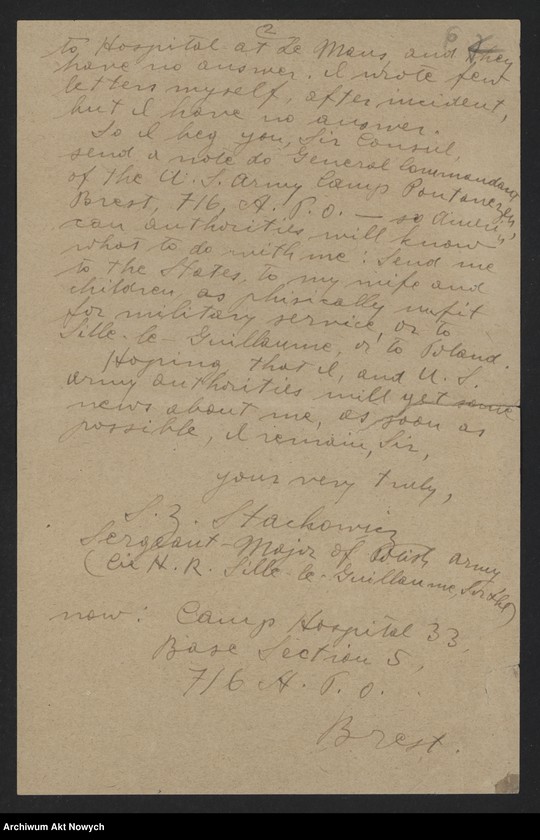 2
to Hospital at Le Mans, and they
have no answer. I wrote few
letters myself, after incident,
but I have no answer.
So I beg you, Sir Consul,
send a note do General Commandant
of the U. S. Army Camp Pontanezen,
Brest, 716, A. P. O. — so Ameri-
can authorities will know
what to do with me: Send me
to the States, to my wife and
children, as phisically unfit
for military service, or to
Sille-le-Guillaume, or to Poland.
Hoping that I, and U. S.
army authorities will get some
news about me, as soon as
possible, I remain, Sir,
your very truly,
S. Z. Stachowicz
Sergeant-Major of Polish Army
H. R. Sille-le-Guillaume, Sarthe)
now: Camp Hospital 33,
Base Section 5,
716 A. P. O.
Brest.
Archiwum Akt Nowych